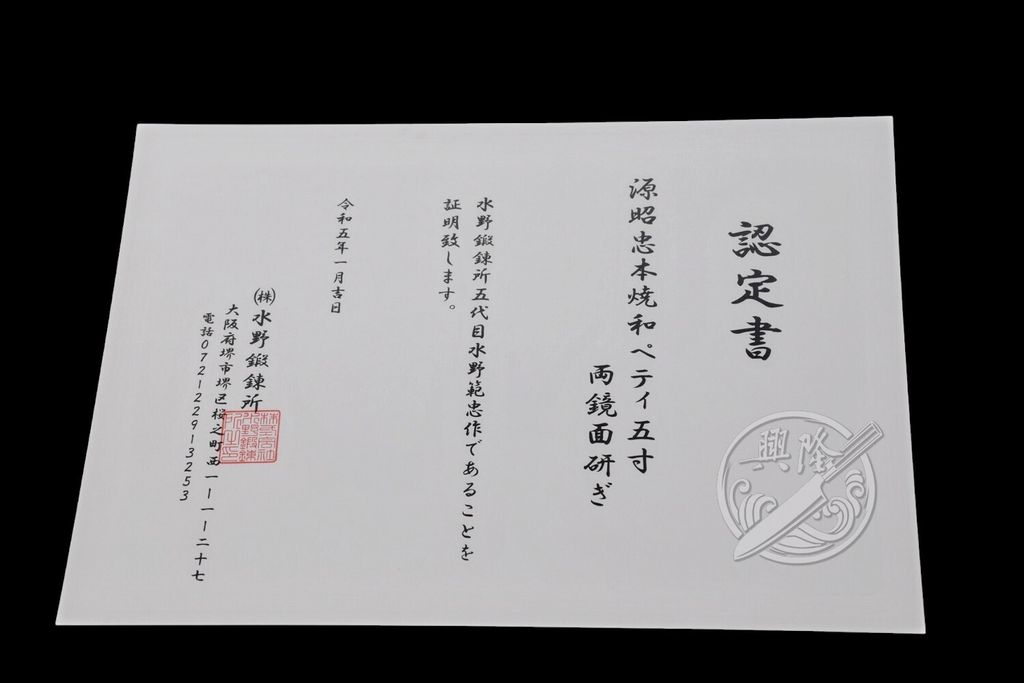 認定書
源昭忠本焼和ペティ五寸
両鏡面研ぎ
水野鍛錬所五代目水野範忠作であることを
証明致します。
令和五年一月吉日
㈱水野鍛錬所
大阪府堺市堺区桜之町西一ー一ー二十七
電話0721229-3253
興隆